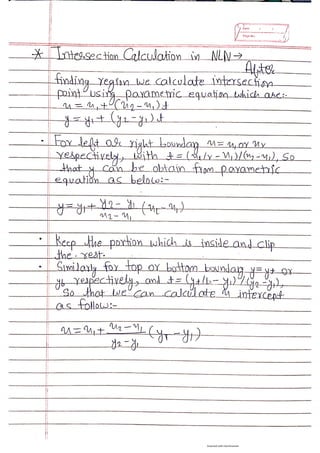 * Intersection Calculation in NLN →
After
finding region we calculate intersection
point using parametric equation which are:-
x = x₁ + (x₂ - x₁) t
y = y₁ + (y₂ - y₁) t
• For left or right boundary x = xₗ or xᵣ
respectively, with t = (xₗ/ᵣ - x₁)/(x₂-x₁), so
that y can be obtain from parametric
equation as below:-
y = y₁ + y₂ - y₁ / x₂ - x₁ (xₗ - x₁)
• Keep the portion which is inside and clip
the rest.
• Similarly for top or bottom boundary y = yt or
yb respectively, and t = (yt/b - y₁)/(y₂-y₁),
So that we can calculate x intercept
as follow:-
x = x₁ + x₂ - x₁ / y₂ - y₁ (yT - y₁)